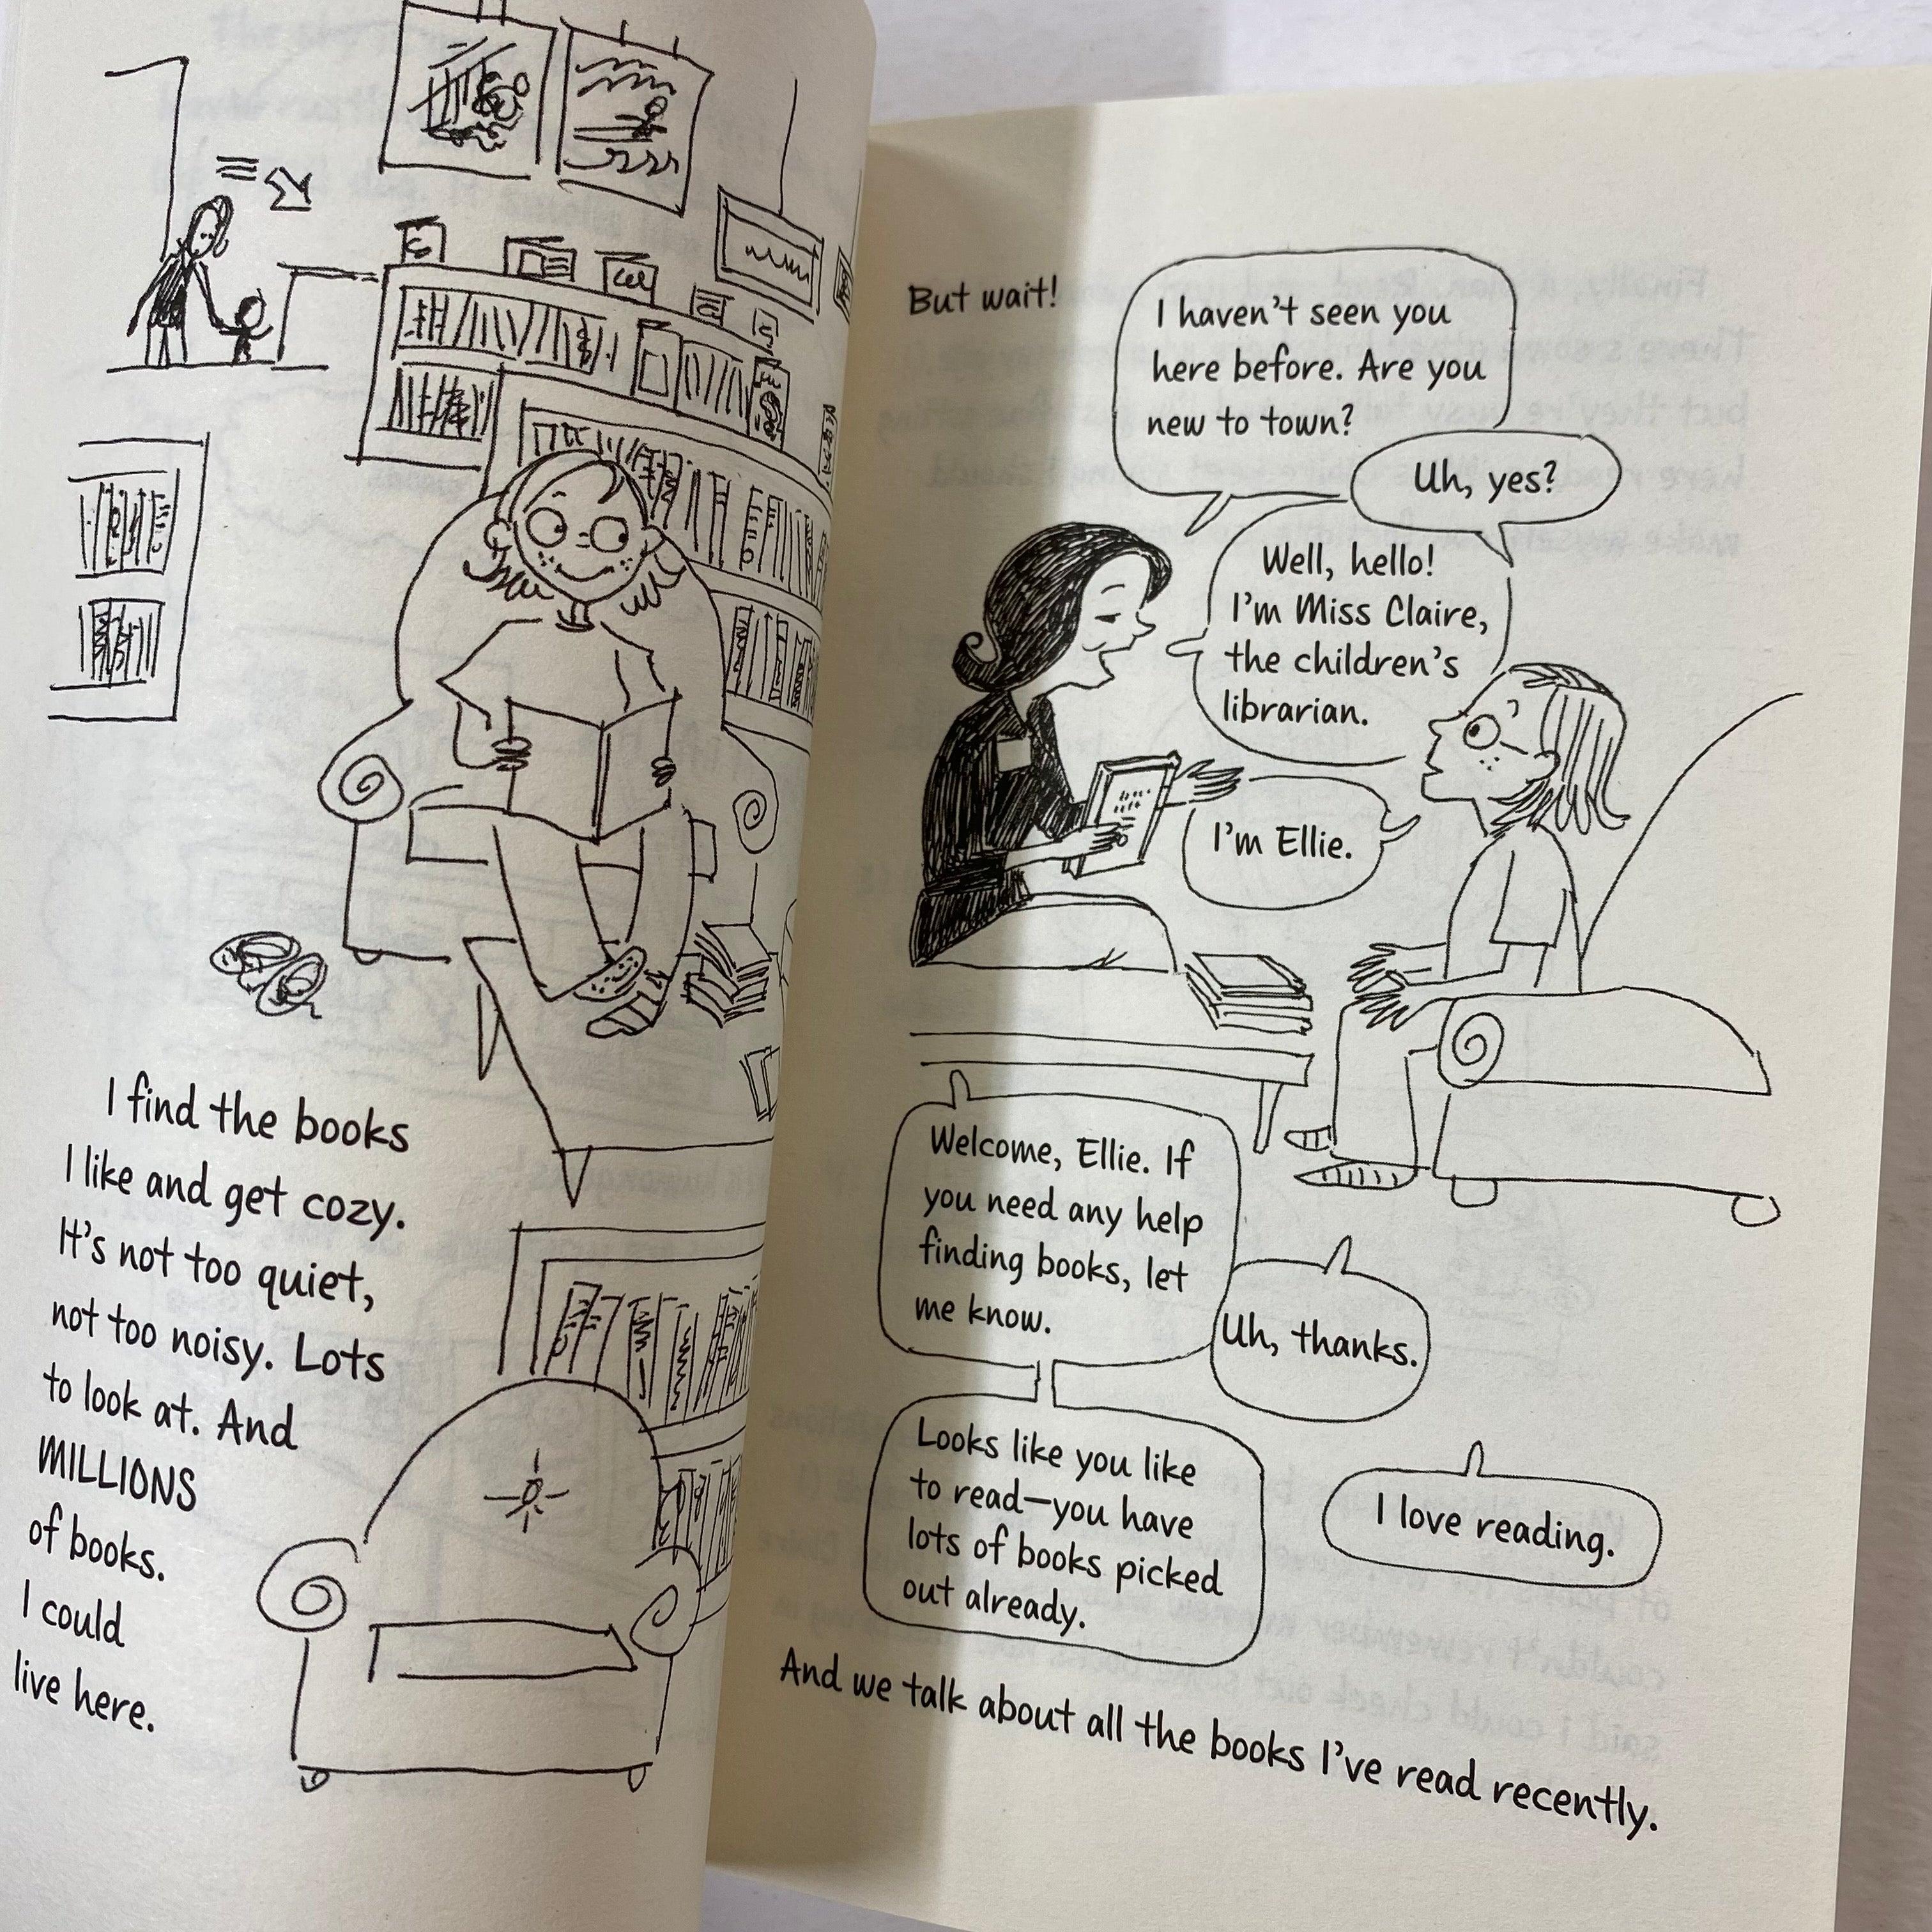 I find the books
I like and get cozy.
It's not too quiet,
not too noisy. Lots
to look at. And
MILLIONS
of books.
I could
live here.
But wait!
I haven't seen you
here before. Are you
new to town?
Uh, yes?
Well, hello!
I'm Miss Claire,
the children's
librarian.
I'm Ellie.
Welcome, Ellie. If
you need any help
finding books, let
me know.
Uh, thanks.
Looks like you like
to read—you have
lots of books picked
out already.
I love reading.
And we talk about all the books I've read recently.